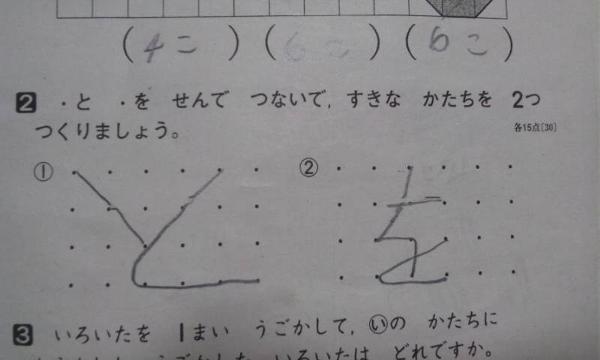 (4こ) (6こ) (6こ)
2 ・と ・を せんで つないで, すきな かたちを 2つ
つくりましょう。 各15点〔30〕
① と ② を
3 いろいたを 1まい うごかして, ⓘの かたちに
うごかした いろいたは どれですか。